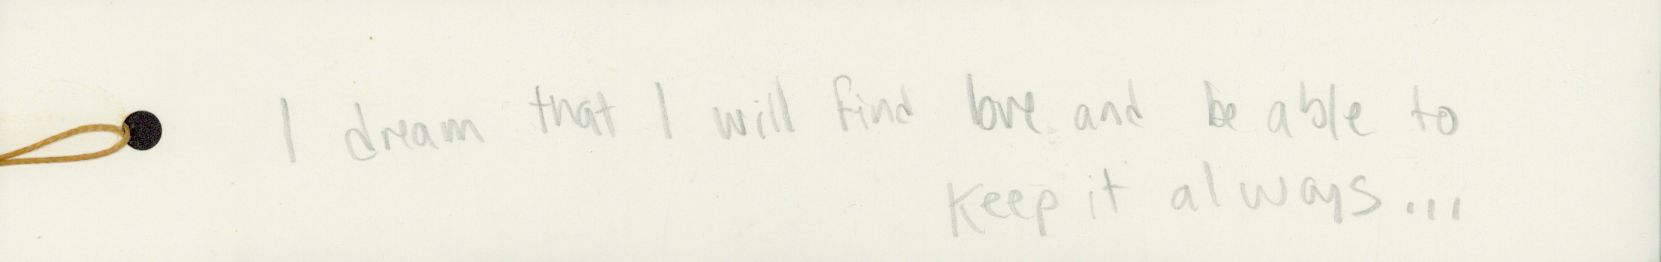 I dream that I will find love and be able to
keep it always...